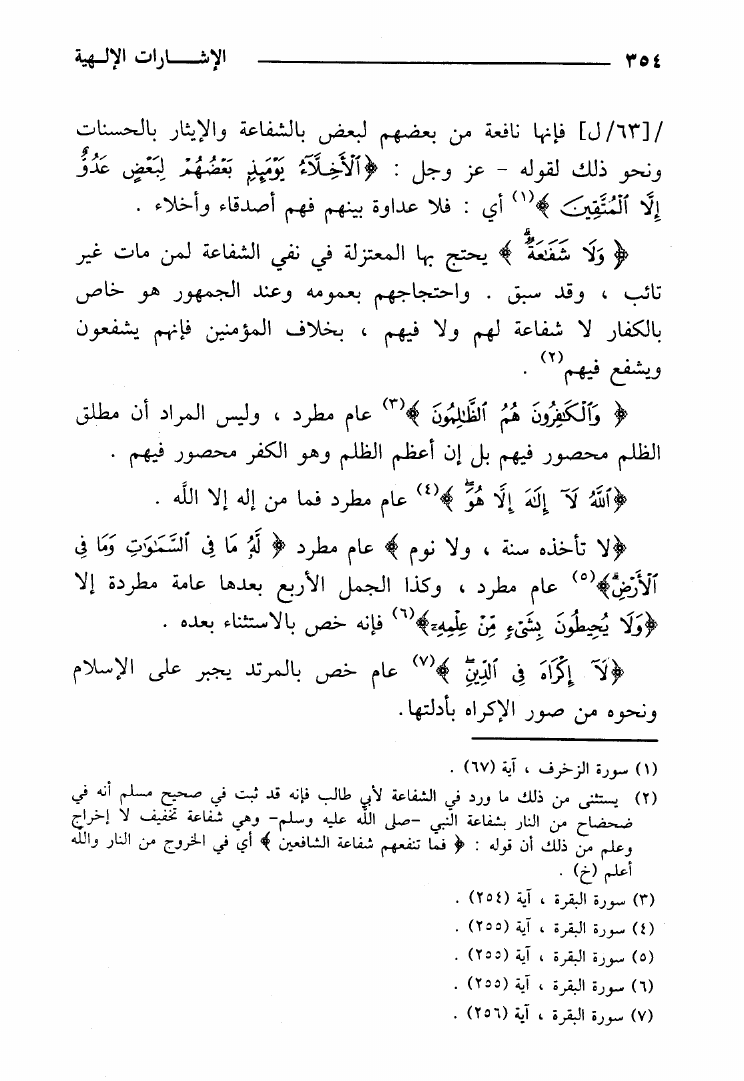 ٣٥٤ الإشـــــارات الإلـهية
/[٦٣/ل] فإنها نافعة من بعضهم لبعض بالشفاعة والإيثار بالحسنات
ونحو ذلك لقوله - عز وجل : ﴿ٱلْأَخِلَّآءُ يَوْمَئِذٍۭ بَعْضُهُمْ لِبَعْضٍ عَدُوٌّ
إِلَّا ٱلْمُتَّقِينَ ﴾(١) أي : فلا عداوة بينهم فهم أصدقاء وأخلاء .
﴿ وَلَا شَفَٰعَةٌۗ ﴾ يحتج بها المعتزلة في نفي الشفاعة لمن مات غير
تائب ، وقد سبق . واحتجاجهم بعمومه وعند الجمهور هو خاص
بالكفار لا شفاعة لهم ولا فيهم ، بخلاف المؤمنين فإنهم يشفعون
ويشفع فيهم(٢) .
﴿ وَٱلْكَٰفِرُونَ هُمُ ٱلظَّٰلِمُونَ ﴾(٣) عام مطرد ، وليس المراد أن مطلق
الظلم محصور فيهم بل إن أعظم الظلم وهو الكفر محصور فيهم .
﴿ٱللَّهُ لَآ إِلَٰهَ إِلَّا هُوَۖ ﴾(٤) عام مطرد فما من إله إلا اللَّه .
﴿لا تأخذه سنة ، ولا نوم ﴾ عام مطرد ﴿ لَّهُۥ مَا فِى ٱلسَّمَٰوَٰتِ وَمَا فِى
ٱلْأَرْضِۗ﴾(٥) عام مطرد ، وكذا الجمل الأربع بعدها عامة مطردة إلا
﴿وَلَا يُحِيطُونَ بِشَىْءٍ مِّنْ عِلْمِهِۦٓ﴾(٦) فإنه خص بالاستثناء بعده .
﴿لَآ إِكْرَاهَ فِى ٱلدِّينِۖ ﴾(٧) عام خص بالمرتد يجبر على الإسلام
ونحوه من صور الإكراه بأدلتها.
(١) سورة الزخرف ، آية (٦٧) .
(٢) يستثنى من ذلك ما ورد في الشفاعة لأبي طالب فإنه قد ثبت في صحيح مسلم أنه في
ضحضاح من النار بشفاعة النبي -صلى اللَّه عليه وسلم- وهي شفاعة تخفيف لا إخراج
وعلم من ذلك أن قوله : ﴿ فما تنفعهم شفاعة الشافعين ﴾ أي في الخروج من النار واللَّه
أعلم (خ) .
(٣) سورة البقرة ، آية (٢٥٤) .
(٤) سورة البقرة ، آية (٢٥٥) .
(٥) سورة البقرة ، آية (٢٥٥) .
(٦) سورة البقرة ، آية (٢٥٥) .
(٧) سورة البقرة ، آية (٢٥٦) .